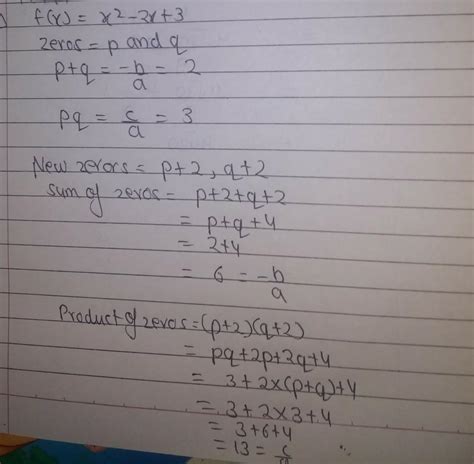 f(x) = x² - 2x + 3
zeros = p and q
p+q = -b/a = 2
pq = c/a = 3
New zerors = p+2, q+2
Sum of zeros = p+2+q+2
= p+q+4
= 2+4
= 6 = -b/a
Product of zeros = (p+2)(q+2)
= pq+2p+2q+4
= 3+2×(p+q)+4
= 3+2×3+4
= 3+6+4
= 13 = c/a